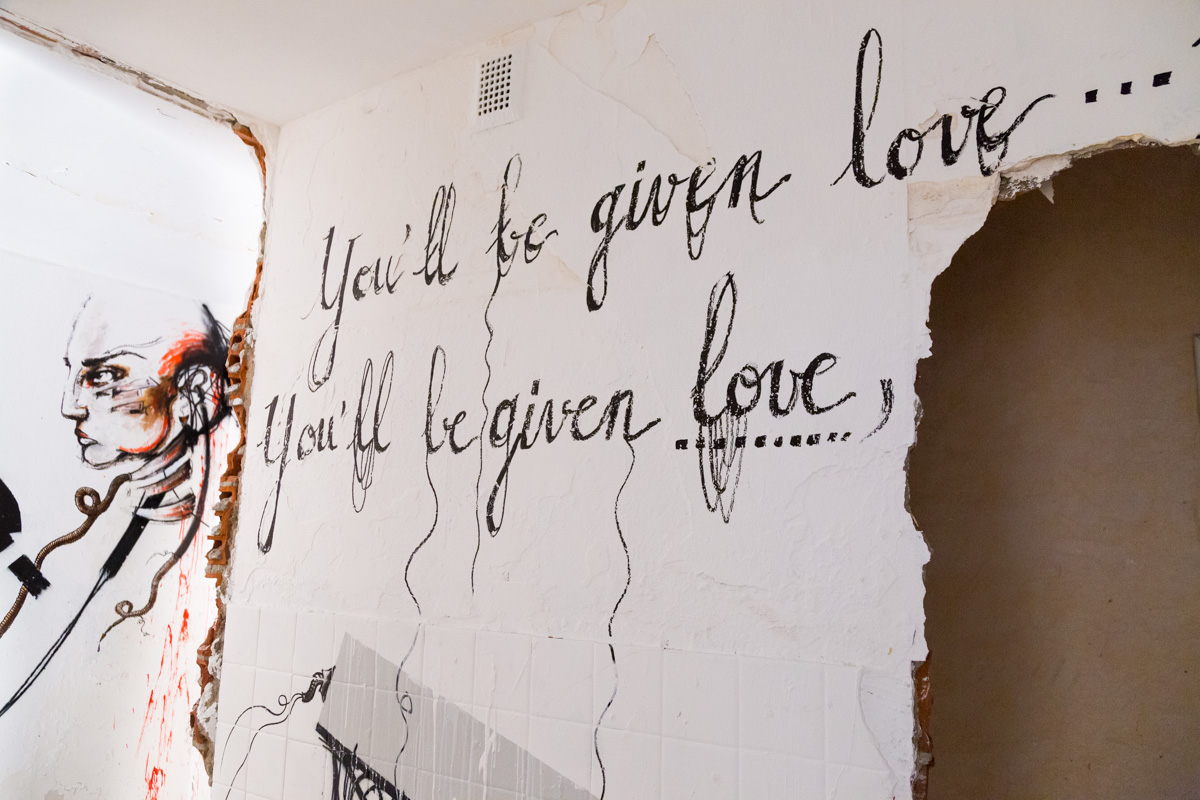 You'll be given love ....
You'll be given love,